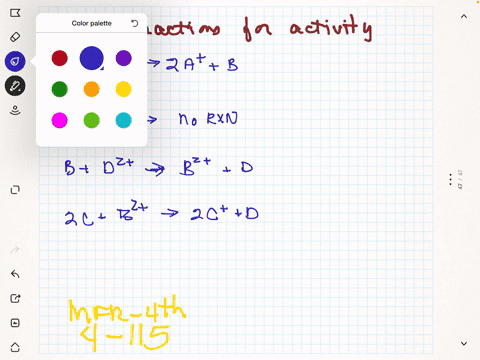 Color palette
actions for activity
→ 2A⁺ + B
→ no RXN
B + D²⁺ → B²⁺ + D
2C + B²⁺ → 2C⁺ + D
MFR-4th
4-115
47 / 47